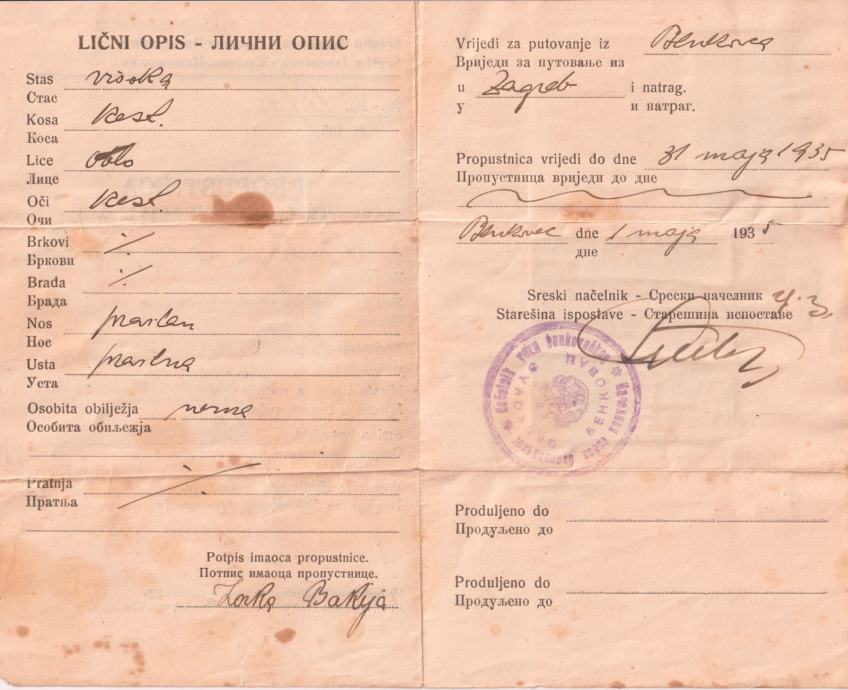 LIČNI OPIS - ЛИЧНИ ОПИС
Stas visoka
Стас
Kosa kest.
Коса
Lice oblo
Лице
Oči kest.
Очи
Brkovi ⁒
Бркови
Brada ⁒
Брада
Nos pravilan
Нос
Usta pravilna
Уста
Osobita obilježja nema
Особита обиљежја
Pratnja ⁒
Пратња
Potpis imaoca propustnice.
Потпис имаоца пропустнице.
Zorka Baklija
Vrijedi za putovanje iz Benkovca
Вриједи за путовање из
u Zagreb i natrag.
у и натраг.
Propustnica vrijedi do dne 31 maja 1935
Пропустница вриједи до дне
Benkovac dne 1 maja 1935
дне
Sreski načelnik - Срески начелник
Starešina ispostave - Старешина испоставе
Načelnik sreza benkovačkog
БЕНКОВАЦ
Produljeno do
Продуљено до
Produljeno do
Продуљено до